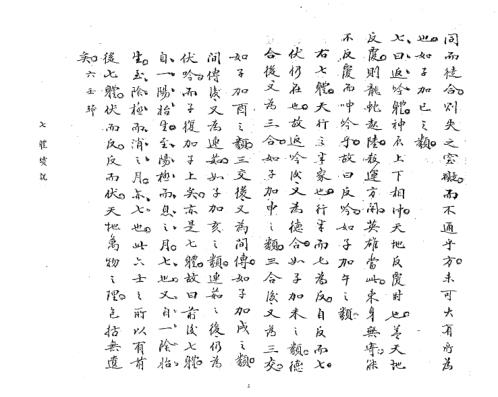 同而徒合則失之空礙而不通乎方未可大有所為
也如子加巳之類
七曰返吟體神在上下相沖天地反覆時也蓋天地
反覆則龍蛇起陸殺運方開英雄當此束身無寄能
不反覆而呻吟乎故曰反吟如子加午之類
右七體天行之事家也行年而七為反自反而七
伏仍在也故返吟後又為德合如子加未之類德
合後又為三合如子加申之類三合後又為三交
如子加酉之類三交後又為間傳如子加戌之類
間傳後又為連茹如子加亥之類連茹之後仍為
伏吟而子復加子上矣亦是七體故曰前後七體
自一陽胎生至陽極而息之月七也又自一陰胎
生至陰極而消之月亦七也此六壬之所以有前
後七體伏而反反而伏天地萬物之理包括無遺
矣六壬歸
七體總説